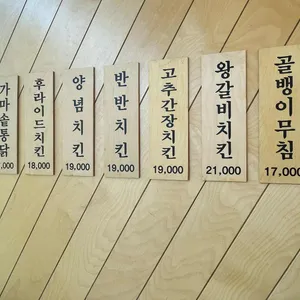 가마솥통닭
,000
후라이드치킨
18,000
양념치킨
19,000
반반치킨
19,000
고추간장치킨
19,000
왕갈비치킨
21,000
골뱅이무침
17,000